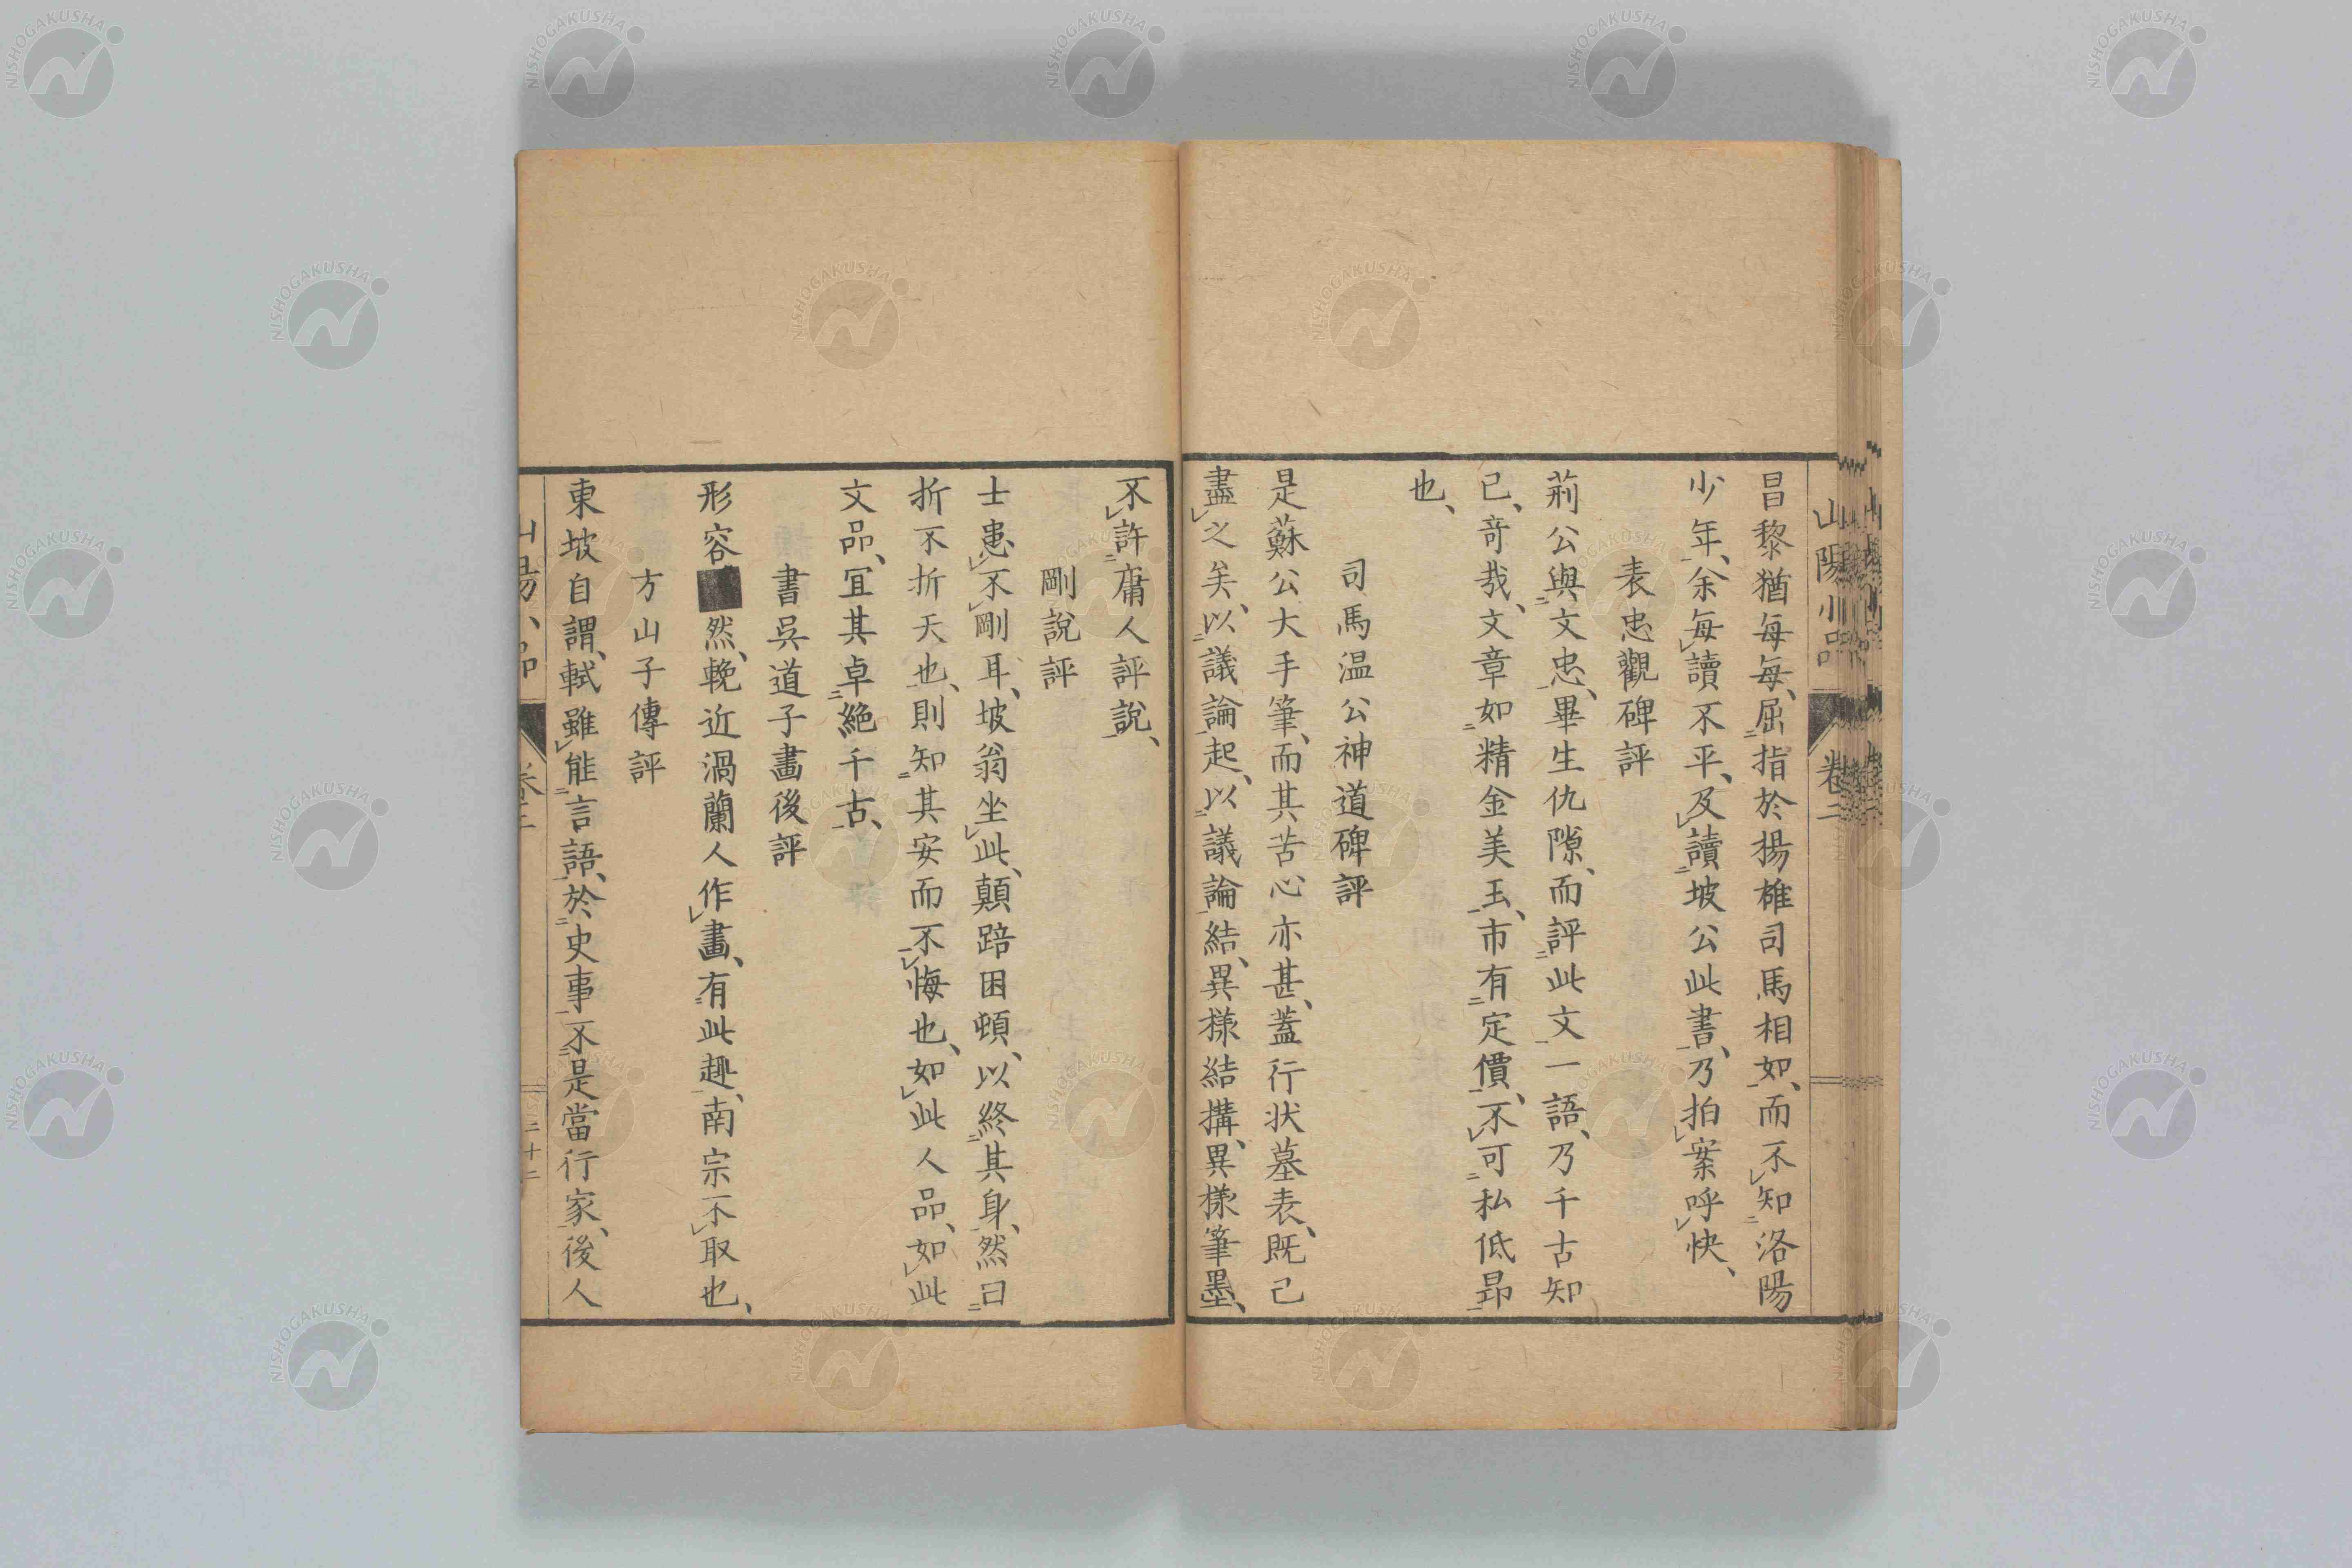 山陽小品 卷二
昌黎猶每每、屈指於揚雄司馬相如、而不知洛陽
少年、余每讀不平、及讀坡公此書、乃拍案呼快、
表忠觀碑評
荊公與文忠、畢生仇隙、而評此文一語、乃千古知
已、奇哉、文章如精金美玉、市有定價、不可私低昂
也、
司馬温公神道碑評
是蘇公大手筆、而其苦心亦甚、蓋行状墓表、既已
盡之矣、以議論起、以議論結、異樣結搆、異樣筆墨、
不許庸人評說、
剛說評
士患不剛耳、坡翁坐此、顛踣困頓、以終其身、然曰
折不折天也、則知其安而不悔也、如此人品、如此
文品、宜其卓絶千古、
書吳道子畫後評
形容■然、輓近渦蘭人作畫、有此趣、南宗不取也、
方山子傳評
東坡自謂、軾雖能言語、於史事不是當行家、後人
二十二
NISHOGAKUSHA